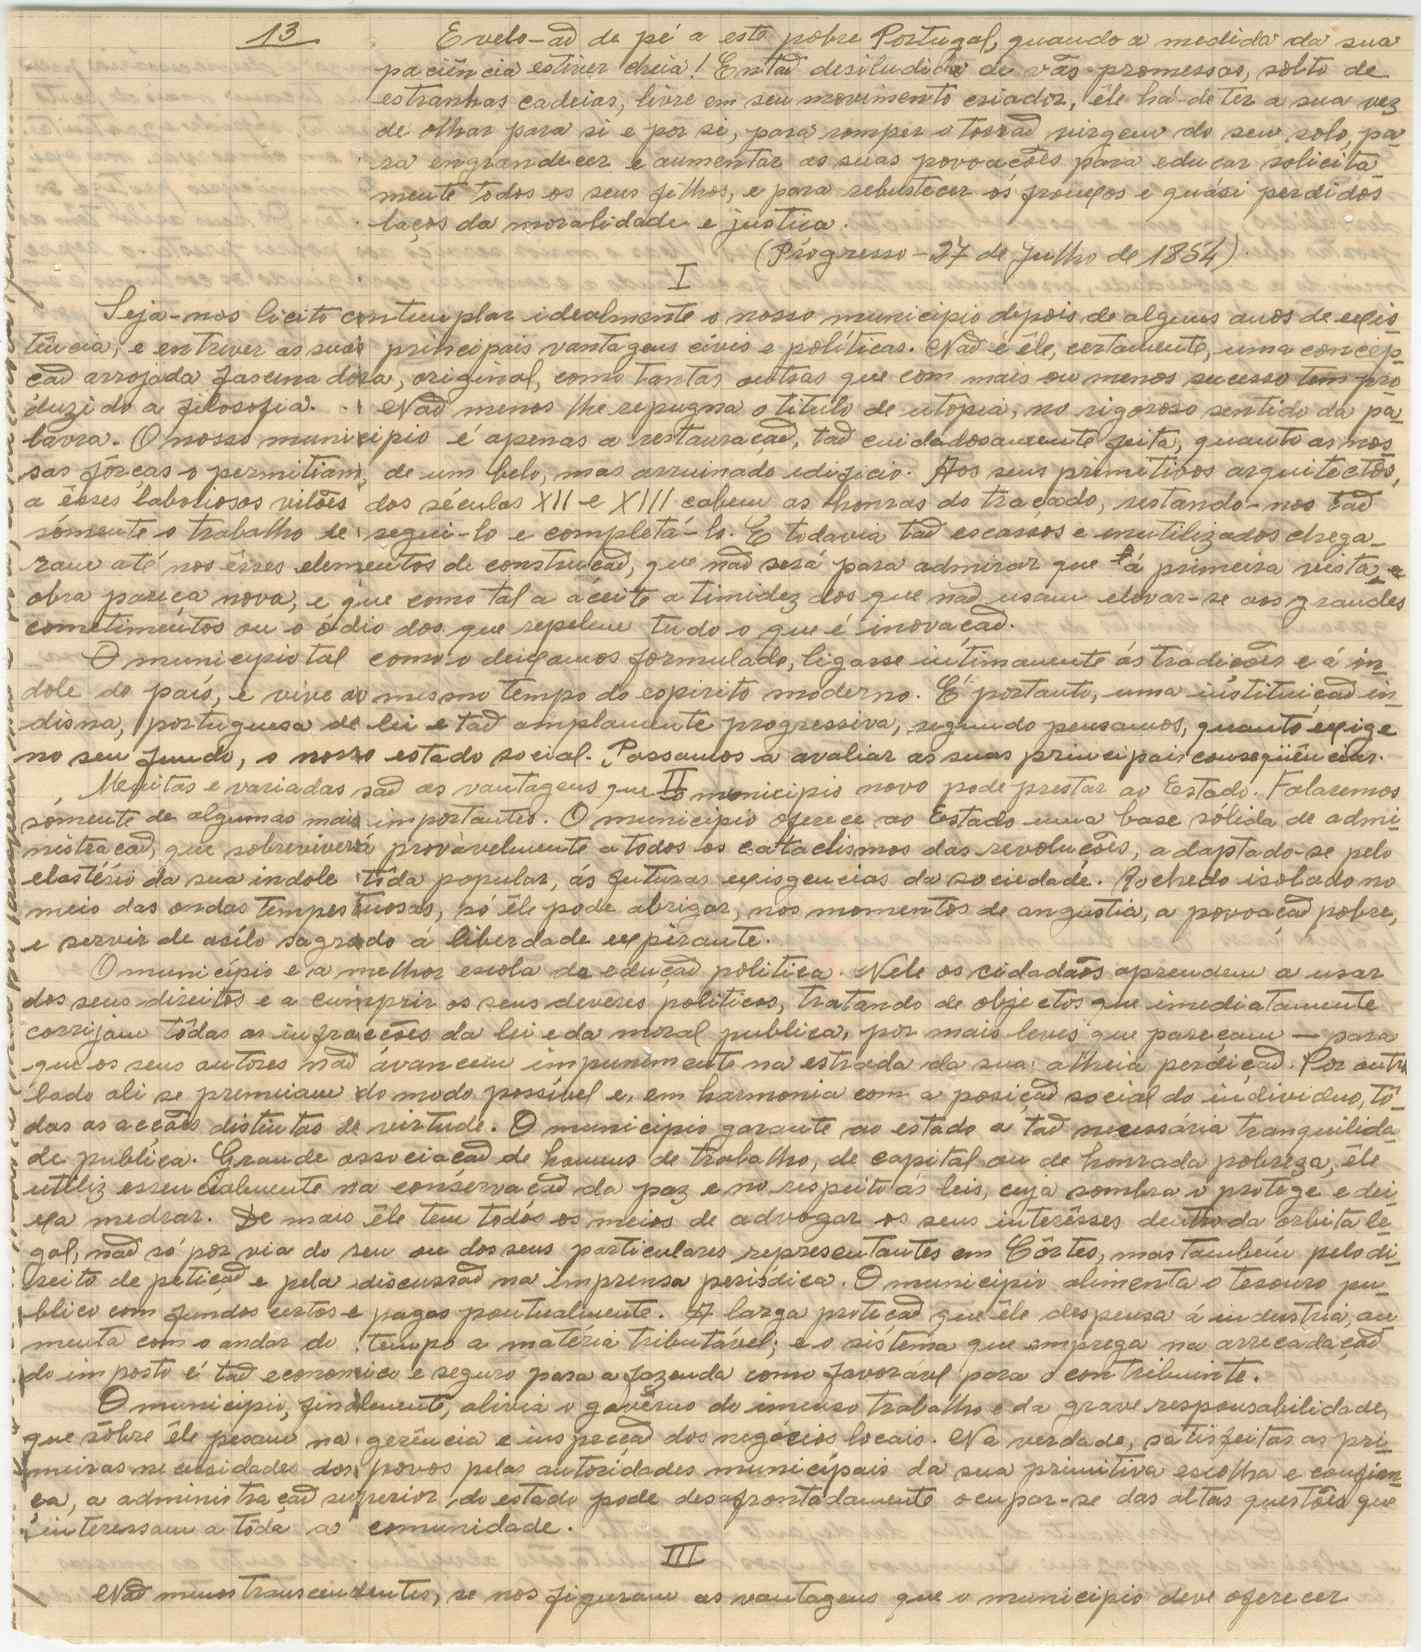 13
E velo-ão de pé a este pobre Portugal, quando a medida da sua
paciência estiver cheia! Então desiludido de vãs promessas, solto de
estranhas cadeias, livre em seu movimento criador, êle há-de ter a sua vez
de olhar para si e por si, para romper o torrão virgem do seu solo, pa-
ra engrandecer e aumentar as suas povoações para educar solicita
mente todos os seus filhos, e para robustecer os frouxos e quási perdidos
laços da moralidade e justiça.
(Progresso - 27 de Julho de 1854)
I
Seja-nos licito contemplar idealmente o nosso municipio depois de alguns anos de exis-
tência, e entrever as suas principais vantagens civis e políticas. Não é êle, certamente, uma concep-
ção arrojada fascinadora, original, como tantas outras que com mais ou menos sucesso tem pro
duzido a filosofia. Não menos lhe repugna o titulo de utopia, no rigoroso sentido da pa-
lavra. O nosso municipio é apenas a restauração, tão cuidadosamente feita, quanto as nos-
sas fôrças o permitiam, de um belo, mas arruinado edificio. Aos seus primitivos arquitectos,
a êsses laboriosos vilões dos séculos XII e XIII cabem as honras do traçado, restando-nos tão
sómente o trabalho de segui-lo e completá-lo. E todavia tão escassos e inutilizados chega-
ram até nos êsses elementos de construção, que não será para admirar que á primeira vista a
obra pareça nova, e que como tal a aceite a timidez dos que não usam elevar-se aos grandes
cometimentos ou o ódio dos que repelem tudo o que é inovação.
O municipio tal como o deixamos formulado, ligasse intimamente ás tradições e á in-
dole do país, e vive ao mesmo tempo do espirito moderno. É portanto, uma instituição in-
disna, portuguesa de lei e tão amplamente progressiva, segundo pensamos, quanto exige
no seu fundo, o nosso estado social. Passamos a avaliar as suas principais conseqüências.
II
Muitas e variadas são as vantagens que o municipio novo pode prestar ao Estado. Falaremos
sómente de algumas mais importantes. O municipio oferece ao Estado uma base sólida de admi-
nistração, que sobreviverá provàvelmente a todos os cataclismos das revoluções, adaptado-se pelo
elastério da sua indole tôda popular, ás futuras exigencias da sociedade. Rochedo isolado no
meio das ondas tempestuosas, só êle pode abrigar, nos momentos de angustia, a povoação pobre,
e servir de asilo sagrado á liberdade expirante.
O município e a melhor escola da edução politica. Nele os cidadãos aprendem a usar
dos seus direitos e a cumprir os seus deveres politicos, tratando de objectos que imediatamente
corrijam tôdas as infracções da lei e da moral publica, por mais leves que pareçam — para
que os seus autores não ávancem impunimente na estrada da sua alheia perdição. Por outro
lado ali se premiam do modo possível e, em harmonia com a posição social do individuo, tô-
das as acções distintas de virtude. O municipio garante ao estado a tão necessária tranquilida-
de publica. Grande associação de homens de trabalho, de capital ou de honrada pobreza, êle
utiliz essencialmente na conservação da paz e no respeito ás leis, cuja sombra o protege e dei-
xa medrar. De mais êle tem todos os meios de advogar os seus interêsses dentro da orbita le-
gal, não só por via do seu ou dos seus particulares representantes em Côrtes, mas também pelo di-
reito de petição e pela discussão na imprensa periódica. O municipio alimenta o tesouro pu-
blico com fundos certos e pagos pontualmente. A larga proteção que êle despensa á industria, au
menta com o andar do tempo a materia tributável; e o sistema que emprega na arrecadação
do imposto é tão economica e seguro para a fazenda como favorável para o contribuinte.
O municipio, finalmente, alivia o govêrno do imenso trabalho e da grave responsabilidade,
que sôbre êle pesam na gerência e inspecção dos negócios locais. Na verdade, satisfeitas as pri-
meiras necessidades dos povos pelas autoridades municipais da sua primitiva escolha e confian-
ça, a administração superior do estado pode desafrontadamente ocupar-se das altas questões que
interessam a tôda a comunidade.
III
Não menos transcendentes, se nos figuram as vantagens que o municipio deve oferecer